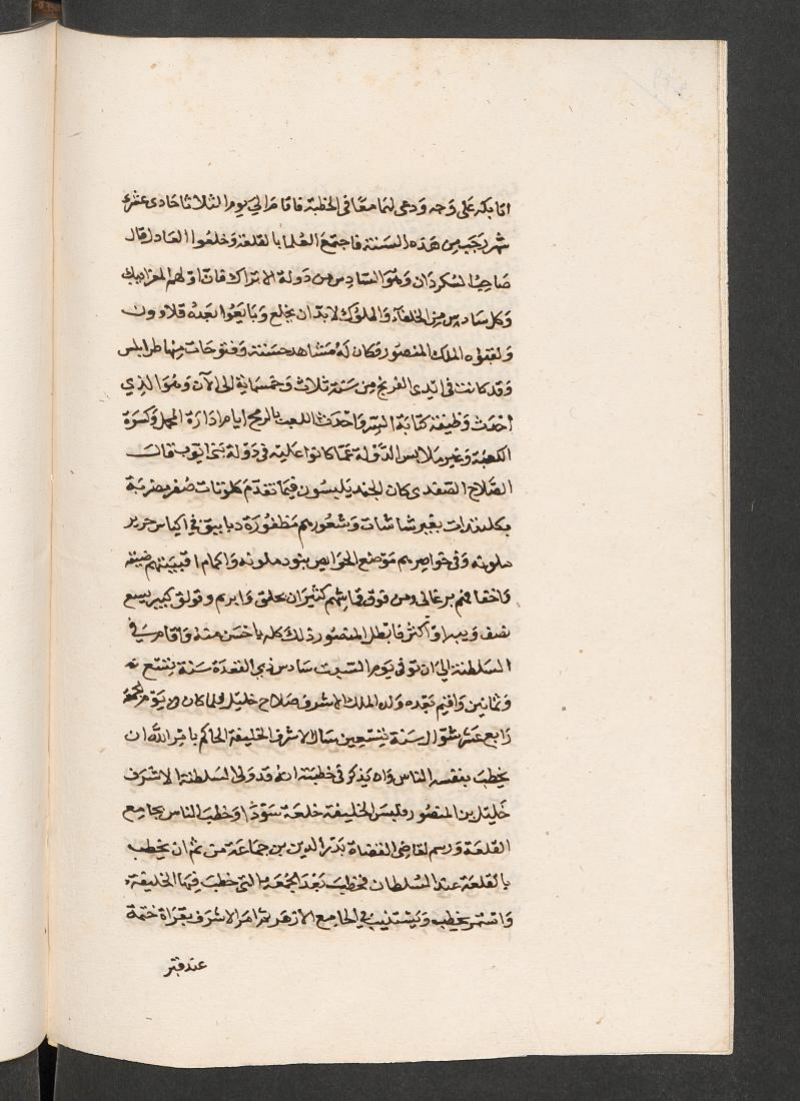 اتابكه على وجه ودعى لهما معا فى الخطبة فاقام الى يوم الثلاثا حادى عشرى
شهر رجب من هذه السنة فاجتمع العلما بالقلعة وخلعوا العادل قال
صاحب السكردان وهو السادس من دولة الاتراك فان اولهم المعز ايبك
وكل سادس من الخلفاء والملوك لابد ان يخلع وبايعوا بعده قلاوون
ولقبوه الملك المنصور وكان له مشاهد حسنة وفتوحات منها طرابلس
وقد كانت فى ايدى الفرنج من سنة ثلاث وخمسماية الى الآن وهو الذي
احدث وظيفة كتابة السر واحدث اللعب بالرمح ايام ادارة المحمل وكسوة
الكعبة وغير ملابس الدولة عما كانوا عليه فى دولة بنى ايوب قال
الصلاح الصفدى كان الجند يلبسون فيما تقدم كلوتات صفر مضربة
بكلبندات بغير شاشات وشعورهم مظفورة دبابيق في اكياس حرير
ملونه وفى خواصرهم موضع الحوايص بنود ملونه واكمام اقبيتهم ضيقه
واخفافهم برغالى ومن فوق قماشهم كثيران بحلق وابزيم وصولق كبير يسع
نصف ويبه او أكثر فابطل المنصور ذلك كله باحسن منه واقام في
السلطنة الى ان توفى يوم السبت سادس ذي القعدة سنة تسع
وثمانين واقيم بعده ولده الملك الاشرف صلاح خليل ولما كان يوم الجمعة
رابع عشر شوال سنة تسعين سال الاشرف الخليفة الحاكم بامر الله ان
يخطب بنفسه الناس وان يذكر فى خطبته انه قد ولى السلطنة الاشرف
خليل بن المنصور فلبس الخليفة خلعة سودا وخطب الناس بجامع
القلعة ورسم لقاضى القضاة بدر الدين بن جماعة من ثم ان يخطب
بالقلعة عند السلطان فخطب بعد الجمعة التى خطب فيها الخليفة
واستمر يخطب ويستنيب في الجامع الازهر ثم امر الاشرف بقراة ختمة
عند قبر